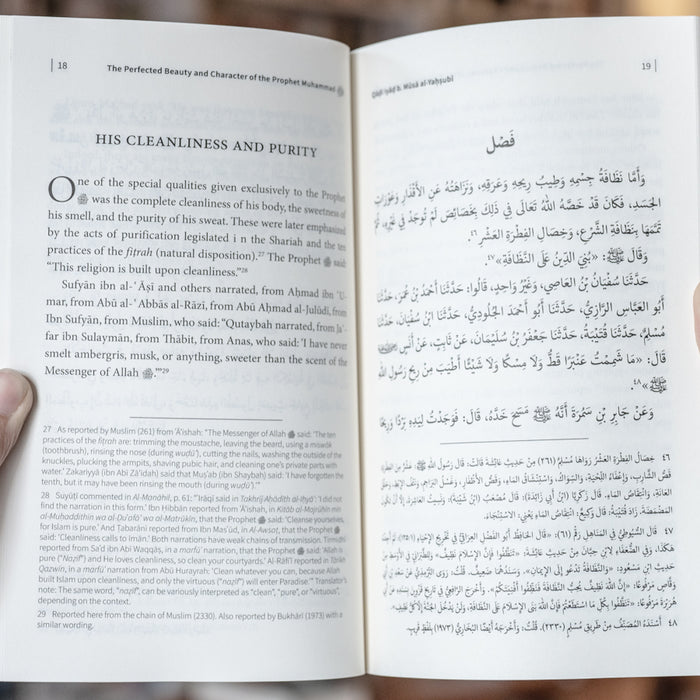 18 The Perfected Beauty and Character of the Prophet Muhammad ﷺ
HIS CLEANLINESS AND PURITY
One of the special qualities given exclusively to the Prophet
ﷺ was the complete cleanliness of his body, the sweetness of
his smell, and the purity of his sweat. These were later emphasized
by the acts of purification legislated i n the Shariah and the ten
practices of the fiṭrah (natural disposition).27 The Prophet ﷺ said:
“This religion is built upon cleanliness.”28
Sufyān ibn al-ʿĀṣī and others narrated, from Aḥmad ibn ʿU-
mar, from Abū al-ʿAbbās al-Rāzī, from Abū Aḥmad al-Julūdī, from
Ibn Sufyān, from Muslim, who said: “Qutaybah narrated, from Jaʿ-
far ibn Sulaymān, from Thābit, from Anas, who said: ‘I have never
smelt ambergris, musk, or anything, sweeter than the scent of the
Messenger of Allah ﷺ.’”29
27 As reported by Muslim (261) from ʿĀʾishah: “The Messenger of Allah ﷺ said: ‘The ten
practices of the fiṭrah are: trimming the moustache, leaving the beard, using a miswāk
(toothbrush), rinsing the nose (during wuḍūʾ), cutting the nails, washing the outside of the
knuckles, plucking the armpits, shaving pubic hair, and cleaning one’s private parts with
water.’ Zakariyyā (ibn Abī Zāʾidah) said that Muṣʿab (ibn Shaybah) said: ‘I have forgotten the
tenth, but it may have been rinsing the mouth (during wuḍūʾ).’”
28 Suyūṭī commented in Al-Manāhil, p. 61: “ʿIrāqī said in Takhrīj Aḥādīth al-Iḥyāʾ: ‘I did not
find the narration in this form.’ Ibn Ḥibbān reported from ʿĀʾishah, in Kitāb al-Majrūḥīn min
al-Muḥaddithīn wa al-Ḍuʿafāʾ wa al-Matrūkīn, that the Prophet ﷺ said: ‘Cleanse yourselves,
for Islam is pure.’ And Ṭabarānī reported from Ibn Masʿūd, in Al-Awsaṭ, that the Prophet ﷺ
said: ‘Cleanliness calls to imān.’ Both narrations have weak chains of transmission. Tirmidhī
reported from Saʿd ibn Abī Waqqāṣ, in a marfūʿ narration, that the Prophet ﷺ said: ‘Allah is
pure (“Naẓīf”) and He loves cleanliness, so clean your courtyards.’ Al-Rāfiʿī reported in Tārīkh
Qazwīn, in a marfūʿ narration from Abū Hurayrah: ‘Clean whatever you can, because Allah
built Islam upon cleanliness, and only the virtuous (“naẓīf”) will enter Paradise.’” Translator’s
note: The same word, “naẓīf”, can be variously interpreted as “clean”, “pure”, or “virtuous”,
depending on the context.
29 Reported here from the chain of Muslim (2330). Also reported by Bukhārī (1973) with a
similar wording.
Qāḍī ʿIyāḍ b. Mūsā al-Yaḥṣubī 19
فَصْل
وَأَمَّا نَظَافَةُ جِسْمِهِ وَطِيبُ رِيحِهِ وَعَرَقِهِ، وَنَزَاهَتُهُ عَنِ الْأَقْذَارِ وَعَوْرَاتِ
الْجَسَدِ، فَكَانَ قَدْ خَصَّهُ اللهُ تَعَالَى فِي ذَلِكَ بِخَصَائِصَ لَمْ تُوجَدْ فِي غَيْرِهِ، ثُمَّ
تَمَّمَهَا بِنَظَافَةِ الشَّرْعِ، وَخِصَالِ الْفِطْرَةِ الْعَشْرِ.٤٦
وَقَالَ ﷺ: «بُنِيَ الدِّينُ عَلَى النَّظَافَةِ»٤٧
حَدَّثَنَا سُفْيَانُ بْنُ الْعَاصِي، وَغَيْرُ وَاحِدٍ، قَالُوا: حَدَّثَنَا أَحْمَدُ بْنُ عُمَرَ، حَدَّثَنَا
أَبُو الْعَبَّاسِ الرَّازِيُّ، حَدَّثَنَا أَبُو أَحْمَدَ الْجُلُودِيُّ، حَدَّثَنَا ابْنُ سُفْيَانَ، حَدَّثَنَا
مُسْلِمٌ، حَدَّثَنَا قُتَيْبَةُ، حَدَّثَنَا جَعْفَرُ بْنُ سُلَيْمَانَ، عَنْ ثَابِتٍ، عَنْ أَنَسٍ
قَالَ: «مَا شَمِمْتُ عَنْبَرًا قَطُّ وَلَا مِسْكًا وَلَا شَيْئًا أَطْيَبَ مِنْ رِيحِ رَسُولِ اللهِ
ﷺ»٤٨
وَعَنْ جَابِرِ بْنِ سَمُرَةَ أَنَّهُ ﷺ مَسَحَ خَدَّهُ، قَالَ: فَوَجَدْتُ لِيَدِهِ بَرْدًا وَرِيحًا
٤٦ خِصَالُ الْفِطْرَةِ الْعَشْرِ رَوَاهَا مُسْلِمٌ (٢٦١) مِنْ حَدِيثِ عَائِشَةَ قَالَتْ: قَالَ رَسُولُ اللهِ ﷺ: عَشْرٌ مِنَ الْفِطْرَةِ
قَصُّ الشَّارِبِ، وَإِعْفَاءُ اللِّحْيَةِ، وَالسِّوَاكُ، وَاسْتِنْشَاقُ الْمَاءِ، وَقَصُّ الْأَظْفَارِ، وَغَسْلُ الْبَرَاجِمِ، وَنَتْفُ الْإِبْطِ، وَحَلْقُ
الْعَانَةِ، وَانْتِقَاصُ الْمَاءِ. قَالَ زَكَرِيَّا (ابْنُ أَبِي زَائِدَةَ): قَالَ مُصْعَبُ (ابْنُ شَيْبَةَ): وَنَسِيتُ الْعَاشِرَةَ، إِلَّا أَنْ تَكُونَ
الْمَضْمَضَةَ. زَادَ قُتَيْبَةُ: قَالَ وَكِيعٌ: انْتِقَاصُ الْمَاءِ يَعْنِي: الِاسْتِنْجَاءَ.
٤٧ قَالَ السُّيُوطِيُّ فِي الْمَنَاهِلِ رقم (٦١): «قَالَ الْحَافِظُ أَبُو الْفَضْلِ الْعِرَاقِيُّ فِي تَخْرِيجِ الْإِحْيَاءِ: لَمْ أَجِدْهُ
هَكَذَا، وَفِي الضُّعَفَاءِ لِابْنِ حِبَّانَ مِنْ حَدِيثِ عَائِشَةَ: «تَنَظَّفُوا فَإِنَّ الْإِسْلَامَ نَظِيفٌ»
حَدِيثِ ابْنِ مَسْعُودٍ: «وَالنَّظَافَةُ تَدْعُو إِلَى الْإِيمَانِ». وَسَنَدُهُمَا ضَعِيفٌ. قُلْتُ: رَوَى التِّرْمِذِيُّ عَنْ سَعْدِ بْنِ أَبِي
وَقَّاصٍ مَرْفُوعًا: «إِنَّ اللهَ نَظِيفٌ يُحِبُّ النَّظَافَةَ فَنَظِّفُوا أَفْنِيَتَكُمْ». وَأَخْرَجَ الرَّافِعِيُّ فِي تَارِيخِ قَزْوِينَ
هُرَيْرَةَ مَرْفُوعًا: «تَنَظَّفُوا بِكُلِّ مَا اسْتَطَعْتُمْ فَإِنَّ اللهَ بَنَى الْإِسْلَامَ عَلَى النَّظَافَةِ، وَلَنْ يَدْخُلَ الْجَنَّةَ إِلَّا كُلُّ نَظِيفٍ.
٤٨ أَسْنَدَهُ الْمُصَنِّفُ مِنْ طَرِيقِ مُسْلِمٍ (٢٣٣٠). قُلْتُ: وَأَخْرَجَهُ أَيْضًا الْبُخَارِيُّ (١٩٧٣) بِلَفْظٍ قَرِيبٍ.